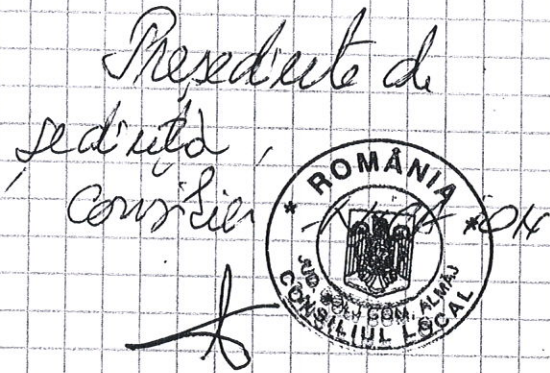 Președinte de
ședință,
Consilier
* ROMÂNIA *
JUD. DOLJ COM. ALMĂJ
CONSILIUL LOCAL